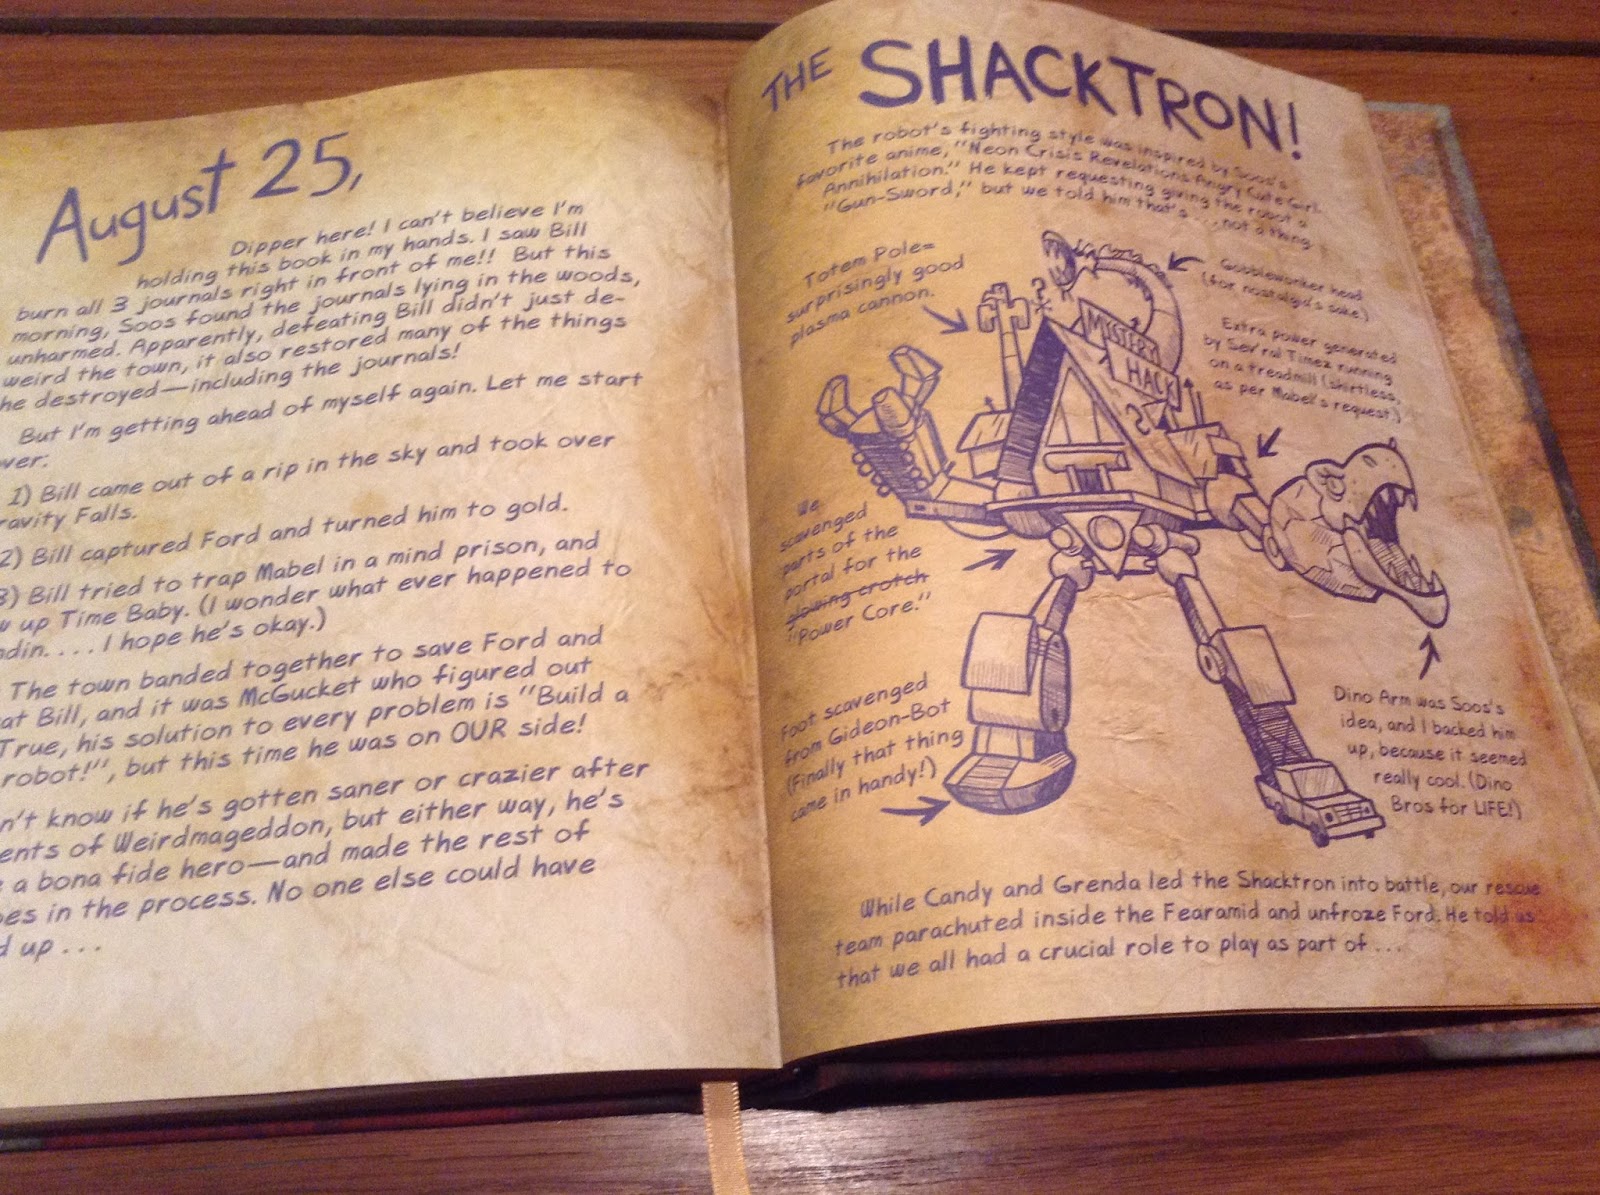 August 25,
Dipper here! I can't believe I'm
holding this book in my hands. I saw Bill
burn all 3 journals right in front of me!! But this
morning, Soos found the journals lying in the woods,
unharmed. Apparently, defeating Bill didn't just de-
weird the town, it also restored many of the things
he destroyed—including the journals!
But I'm getting ahead of myself again. Let me start
ver:
1) Bill came out of a rip in the sky and took over
ravity Falls.
2) Bill captured Ford and turned him to gold.
3) Bill tried to trap Mabel in a mind prison, and
w up Time Baby. (I wonder what ever happened to
ndin. . . . I hope he's okay.)
The town banded together to save Ford and
at Bill, and it was McGucket who figured out
True, his solution to every problem is "Build a
robot!", but this time he was on OUR side!
n't know if he's gotten saner or crazier after
ents of Weirdmageddon, but either way, he's
a bona fide hero—and made the rest of
es in the process. No one else could have
d up . . .
THE SHACKTRON!
The robot's fighting style was inspired by Soos's
favorite anime, "Neon Crisis Revelations Angry Cute Girl
Annihilation." He kept requesting giving the robot a
"Gun-Sword," but we told him that's . . . not a thing.
Totem Pole=
surprisingly good
plasma cannon.
Gobblewonker head
(for nostalgia's sake.)
Extra power generated
by Sev'ral Timez running
on a treadmill (shirtless,
as per Mabel's request.)
MYSTERY
HACK
?
?
We
scavenged
parts of the
portal for the
glowing crotch
"Power Core."
Foot scavenged
from Gideon-Bot
(Finally that thing
came in handy!)
Dino Arm was Soos's
idea, and I backed him
up, because it seemed
really cool. (Dino
Bros for LIFE!)
While Candy and Grenda led the Shacktron into battle, our rescue
team parachuted inside the Fearamid and unfroze Ford. He told us
that we all had a crucial role to play as part of . . .